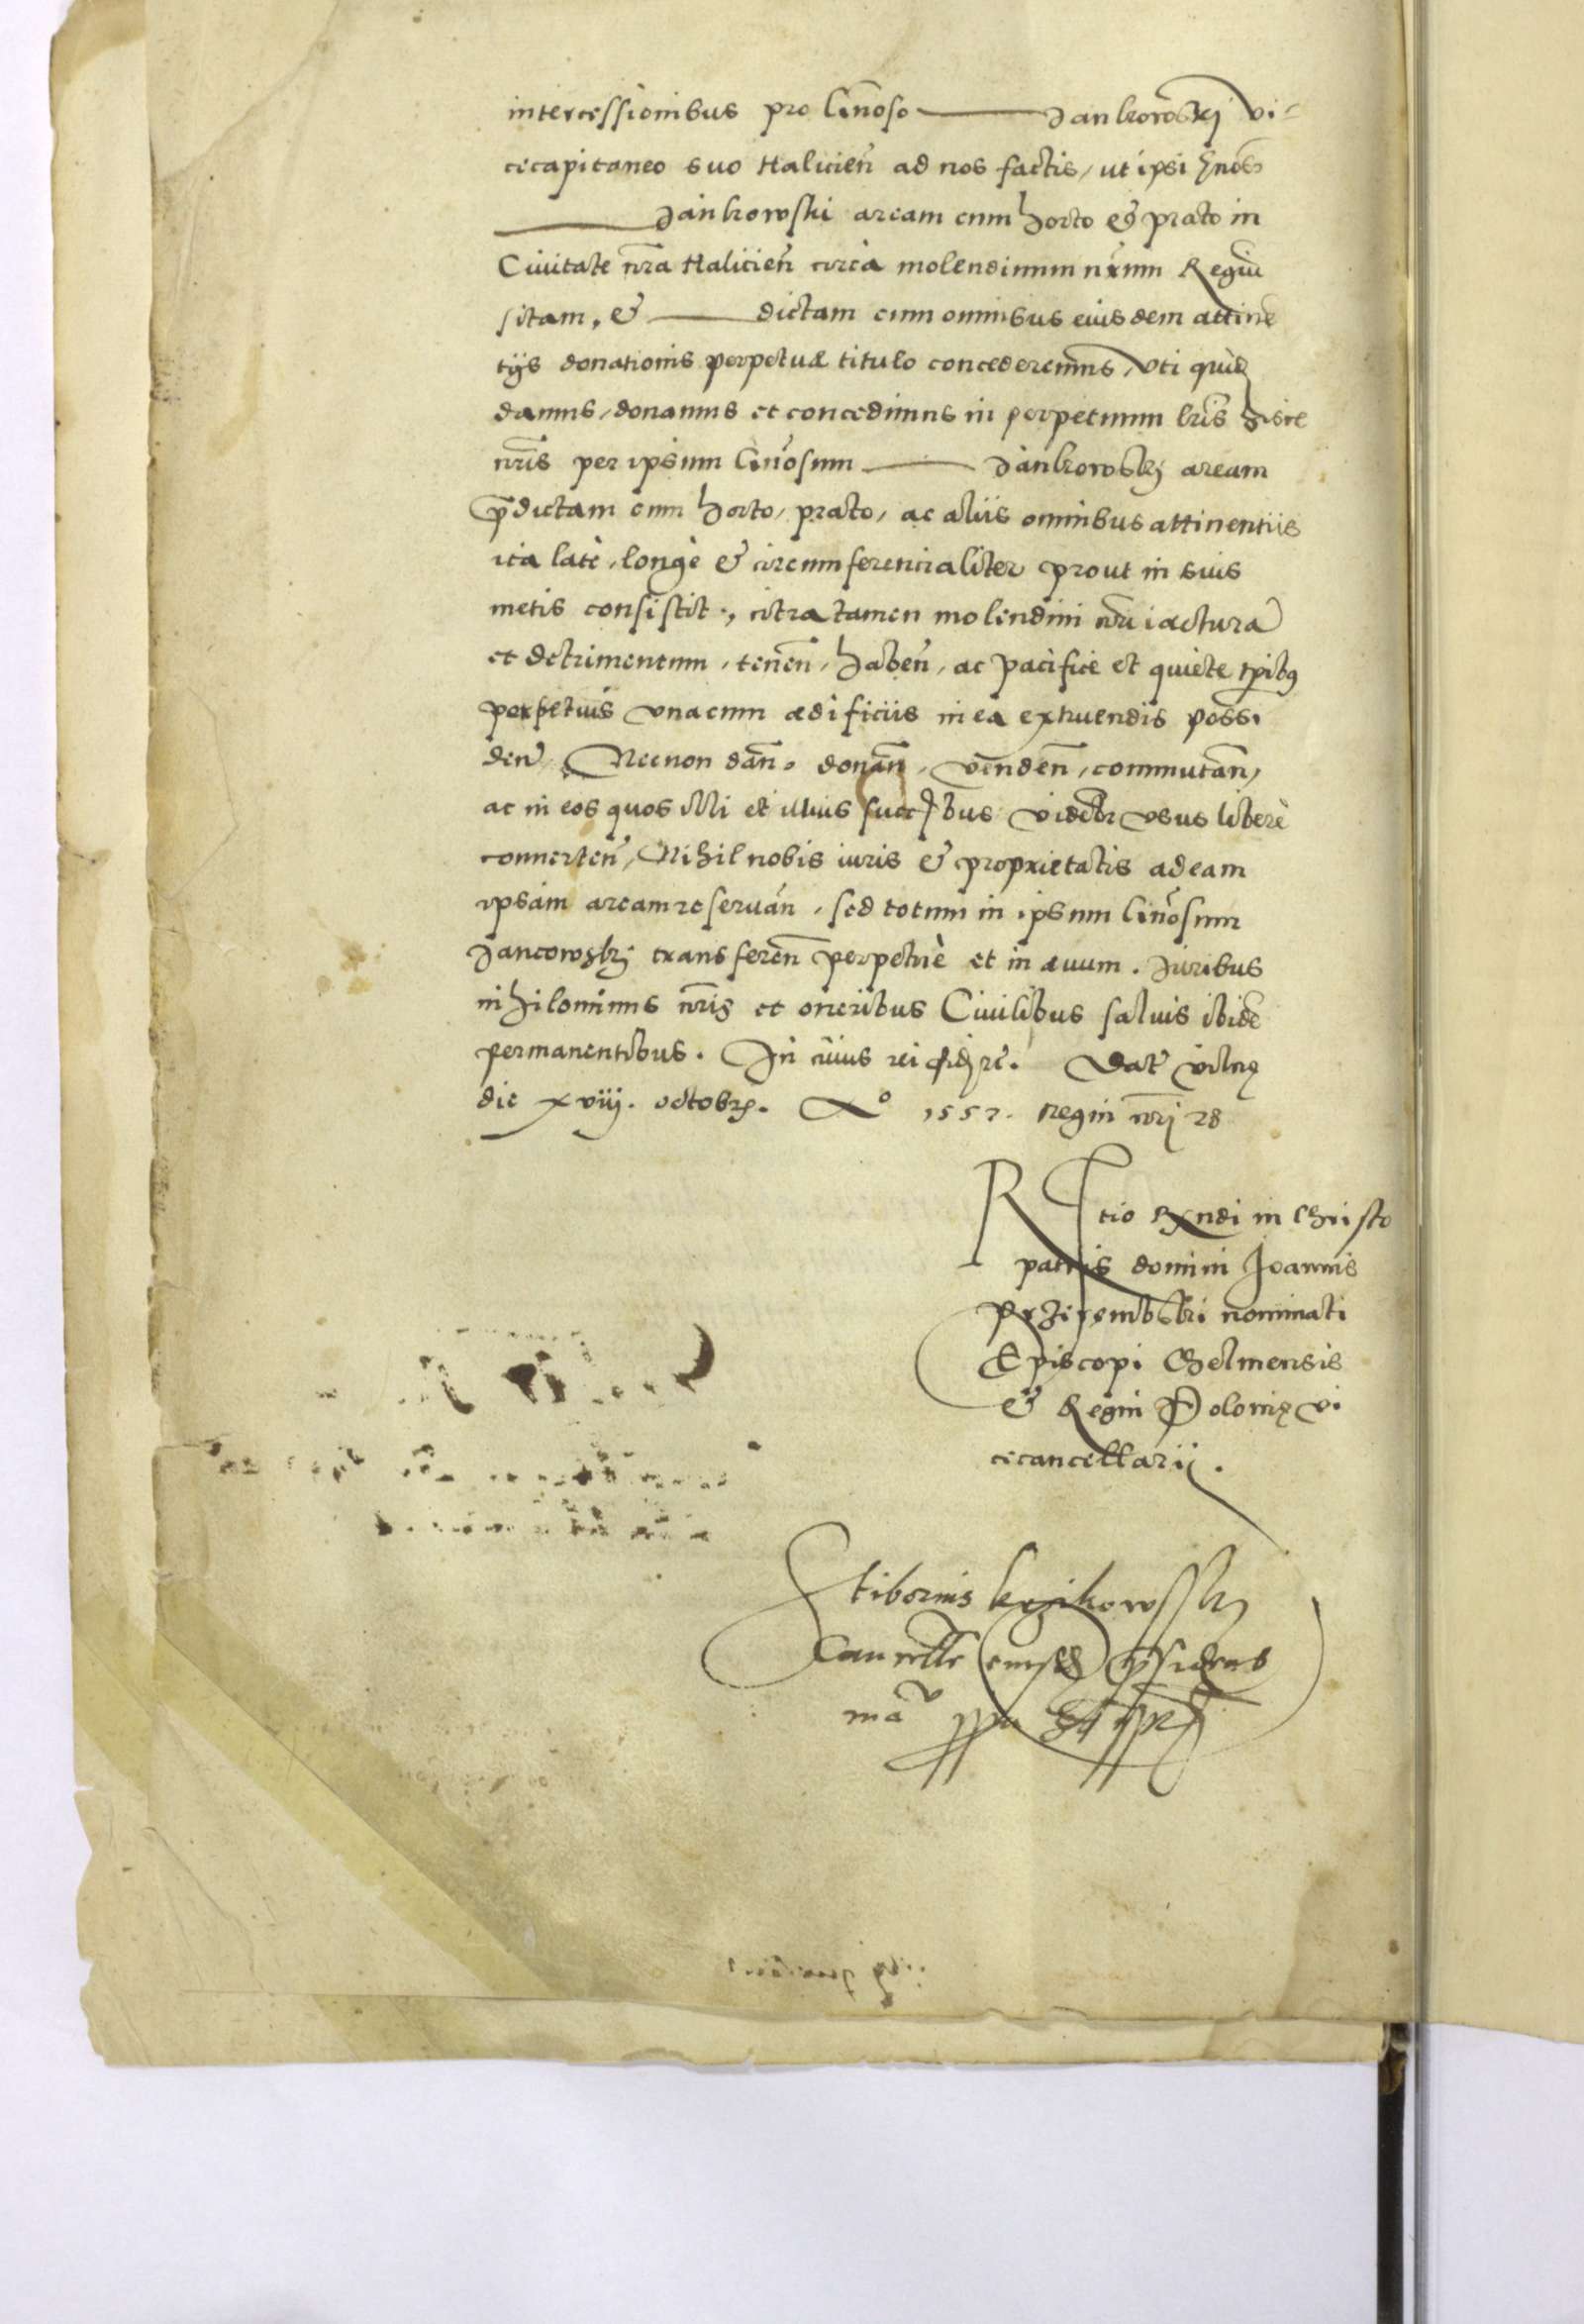 intercessionibus pro Gnoso ——— Jankowskj vi-
cecapitaneo suo Halicien ad nos factis, ut ipsi Gnoso
——— Jankowski aream cum horto & prato in
Ciuitate nra Halicien circa molendinum nrum Regiu
sitam, & ——— dictam cum omnibus eiusdem attine
tijs donationis perpetuæ titulo concederemus, vti quidem
damus, donamus et concedimus in perpetuum lris hisce
nris per ipsum Gnosum ——— Jankowskj aream
prædictam cum horto, prato, ac aliis omnibus attinentiis
ita latè, longè & circumferencialiter prout in suis
metis consistit, citra tamen molendini nri iactura
et detrimentum, tenen, haben, ac pacifice et quiete tpibus
perpetuis vnacum ædificiis in ea extruendis possi
den, Necnon dan, donan, venden, commutan,
ac in eos quos illi et illius succ bus videbr vsus liberè
conuerten, Nihil nobis iuris & proprietatis ad eam
ipsam aream reseruan, sed totum in ipsum Gnosum
Jancowskj transferen perpetuè et in æuum. Juribus
nihilominus nris et oneribus Ciuilibus saluis ibide
permanentibus. In cuius rei fidem. Dat Vilnę
die xviij. octobris. Ao 1557. regni nri 28
Rtio Rxndi in Christo
patris domini Joannis
Przerembski nominati
Episcopi Chelmensis
& Regni Polonię vi
cecancellarij.
Stiborius krzikowsskj
Cancelle eiusdem
ma ppa